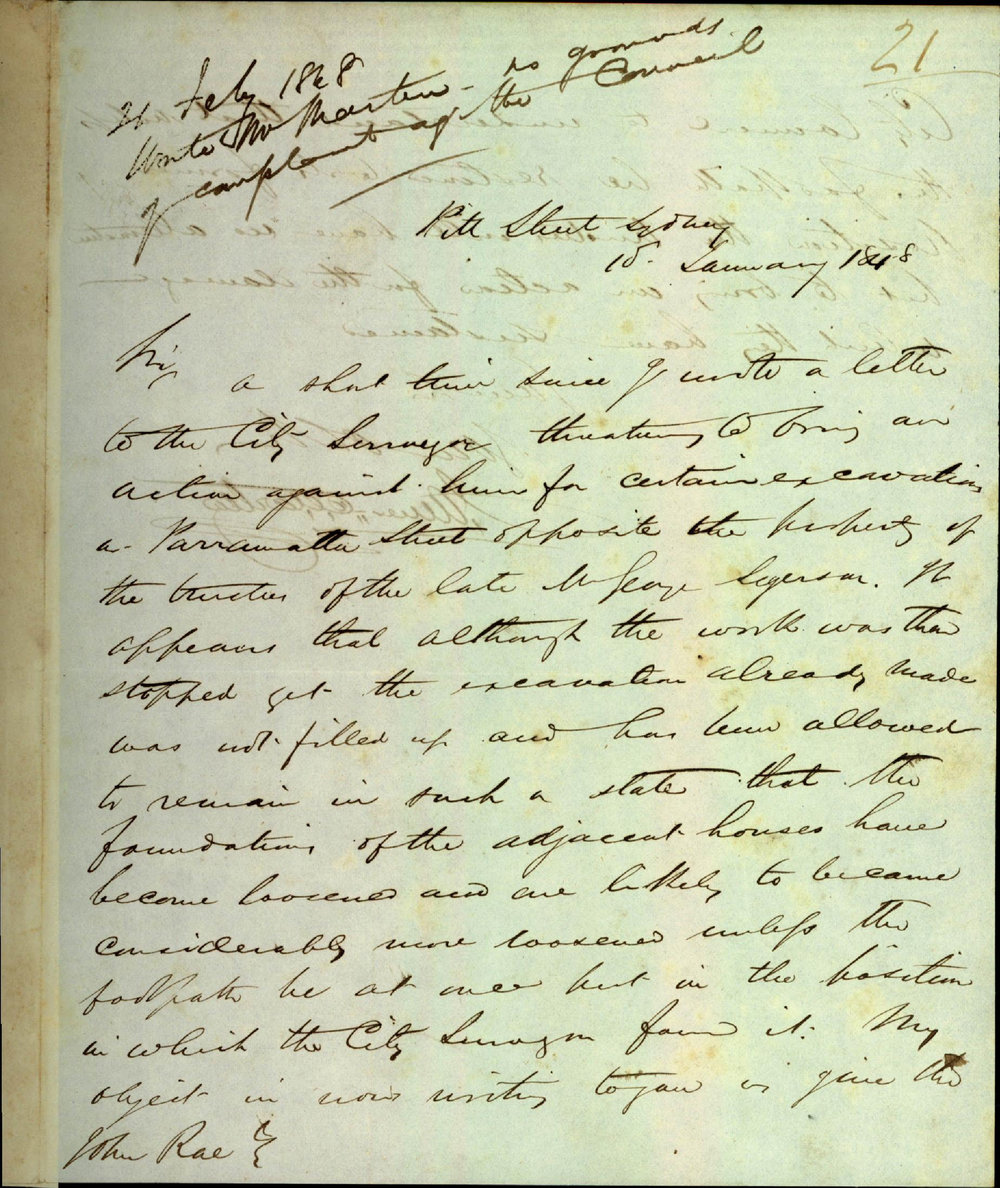 21
21 Feby 1848
Wrote Mr Marten - no grounds
of complaint agt the Council
Pitt Street Sydney
18 January 1848
Sir
a short time since I wrote a letter
to the City Surveyor threatening to bring an
action against him for certain excavations
in Parramatta Street opposite the property of
the trustees of the late Mr George Segerson. It
appears that although the work was then
stopped yet the excavation already made
was not filled up and has been allowed
to remain in such a state that the
foundations of the adjacent houses have
become loosened and are likely to become
considerably more loosened unless the
footpath be at once put in the position
in which the City Surveyor found it. My
object in now writing to you is give the
John Rae